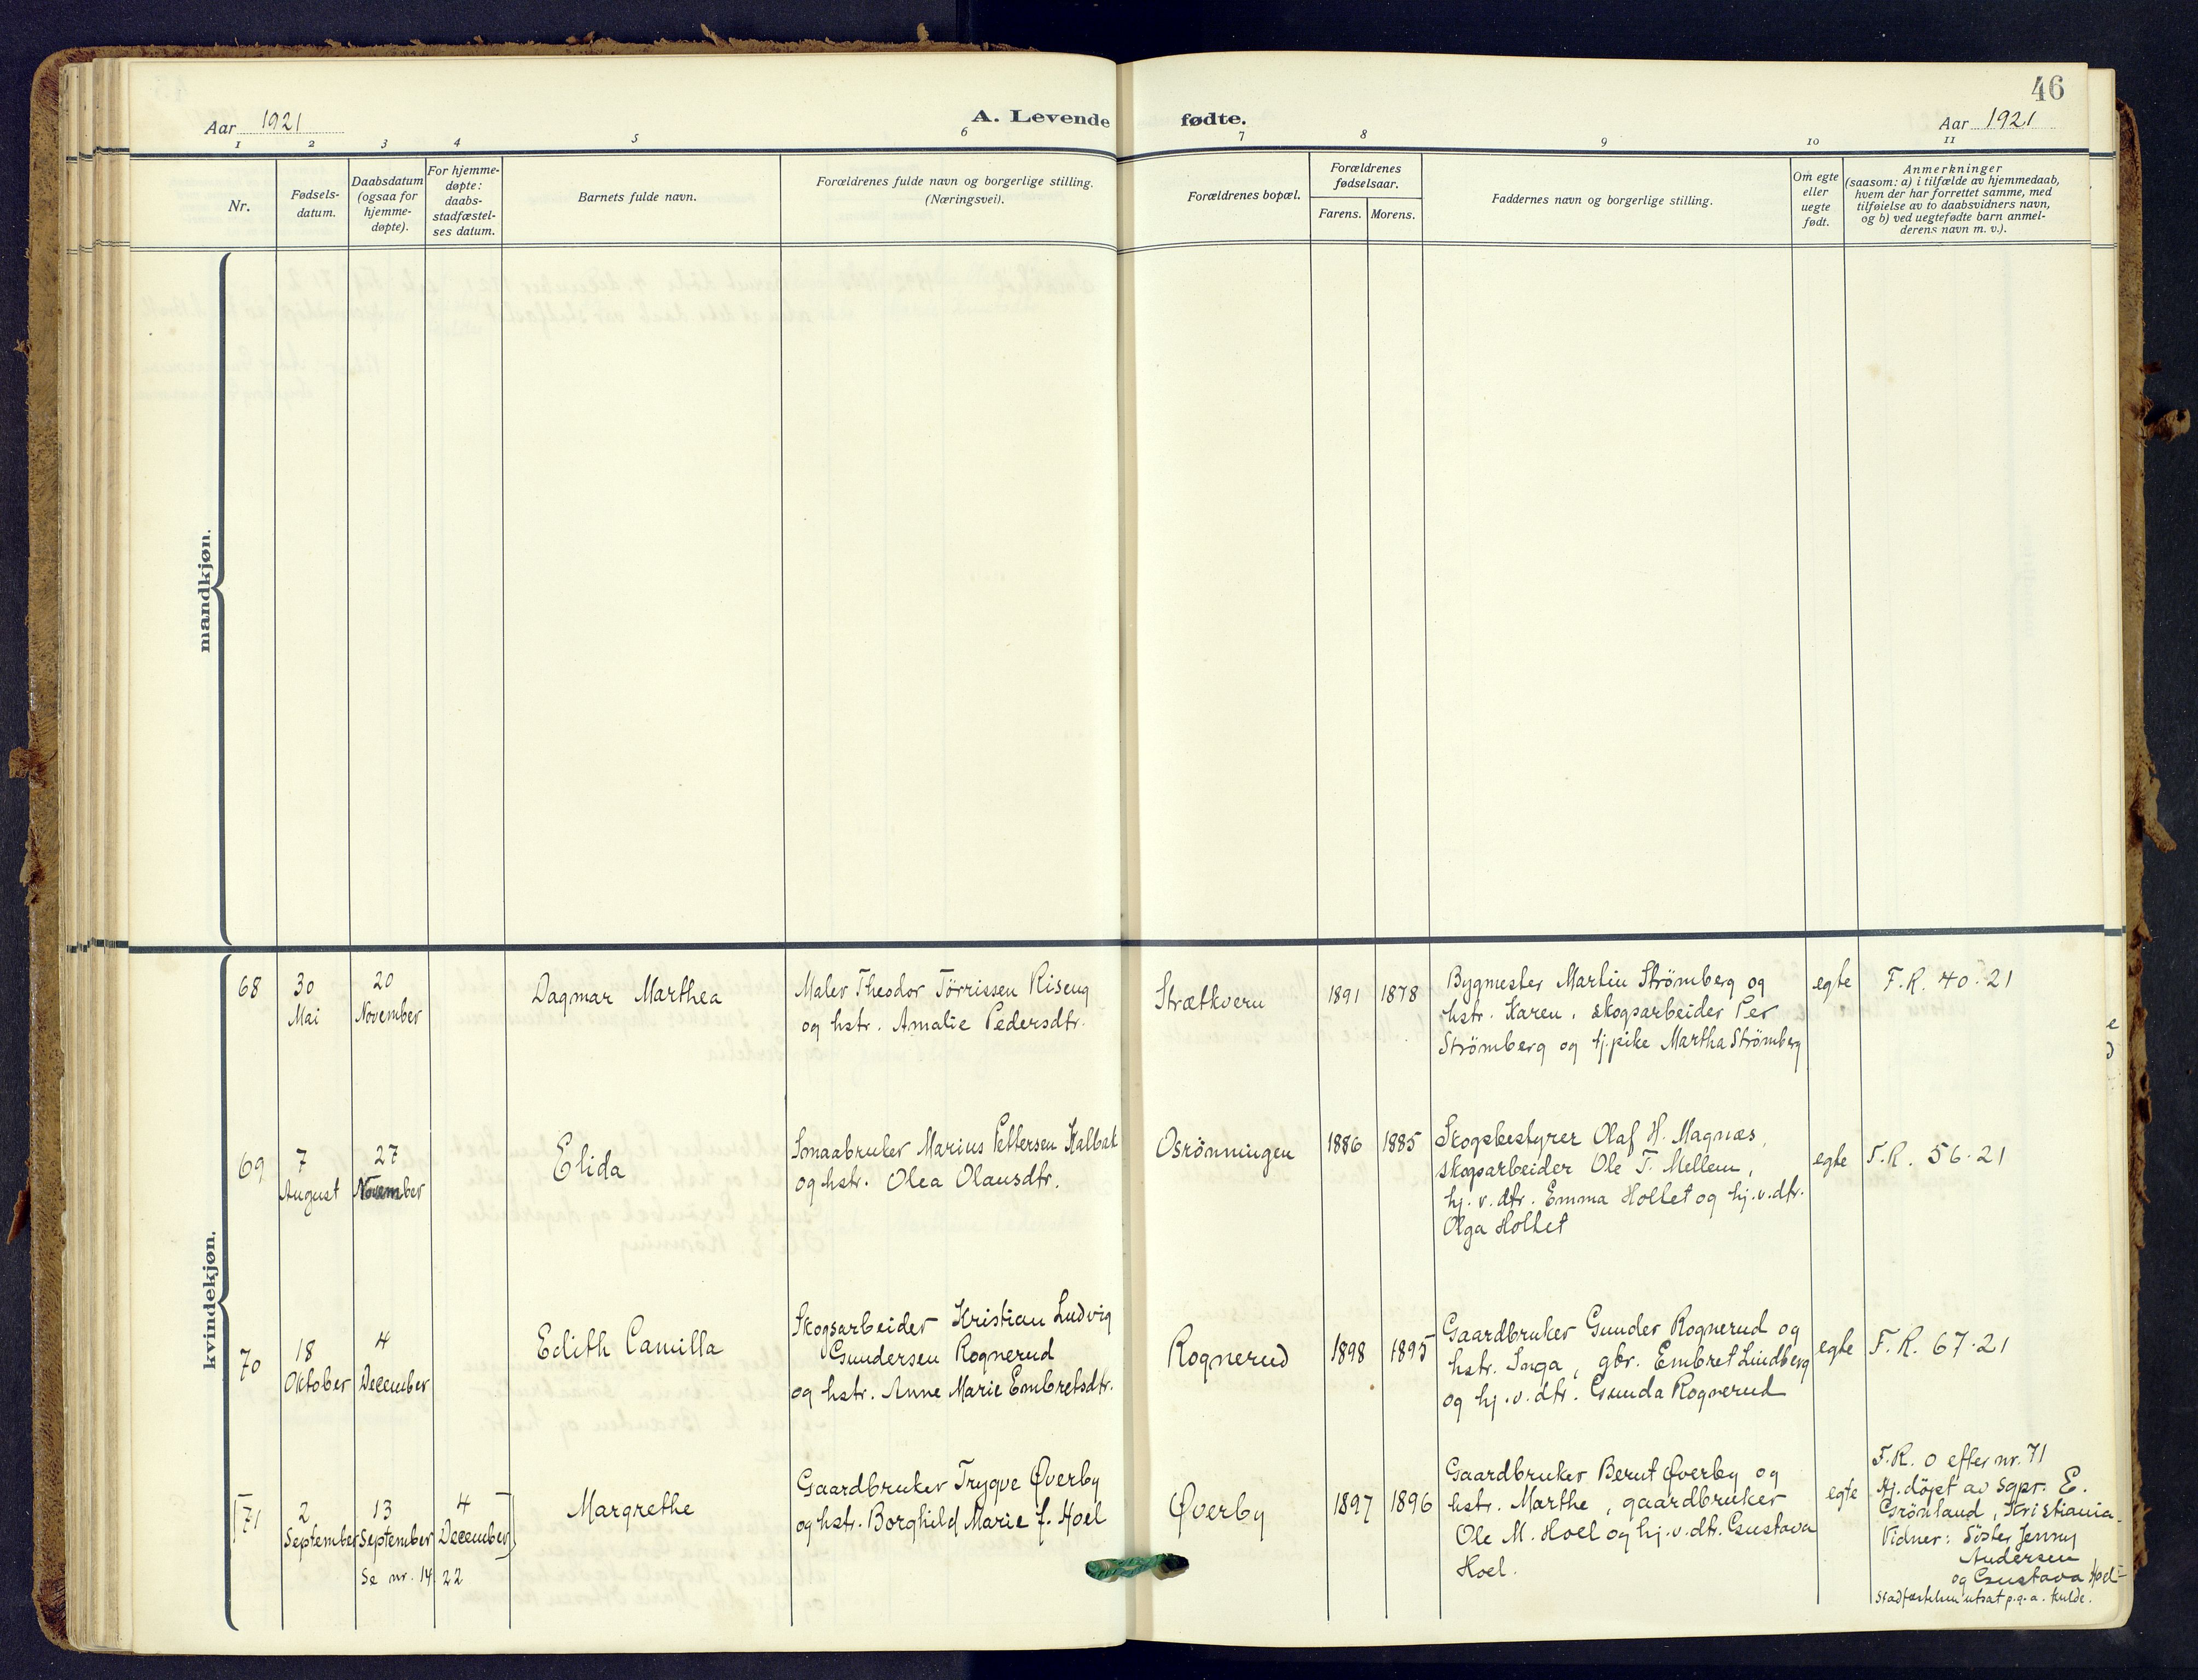 46
Aar 1921
A. Levende fødte.
Aar 1921
1 2 3 4 5 6 7 8 9 10 11
Nr.
Fødsels-
datum.
Daabsdatum
(ogsaa for
hjemme-
døpte).
For hjemme-
døpte:
daabs-
stadfæstel-
ses datum.
Barnets fulde navn.
Forældrenes fulde navn og borgerlige stilling.
(Næringsvei).
Forældrenes bopæl.
Forældrenes
fødselsaar.
Farens. Morens.
Faddernes navn og borgerlige stilling.
Om egte
eller
uegte
født.
Anmerkninger
(saasom: a) i tilfælde av hjemmedaab,
hvem der har forrettet samme, med
tilføielse av to daabsvidners navn,
og b) ved uegtefødte barn anmel-
derens navn m. v.).
mandkjøn.
kvindekjøn.
68
30
Mai
20
November
Dagmar Marthea
Maler Theodor Tørrissen Riseng
og hstr. Amalie Pedersdtr.
Strætkvern
1891
1878
Bygmester Martin Strömberg og
hstr. Karen. skogsarbeider Per
Strömberg og tj.pike Martha Strömberg
egte
F.R. 40.21
69
7
August
27
November
Elida
Smaabruker Marius Pettersen Kalbak
og hstr. Olea Olausdtr.
Osrönningen
1886
1885
Skogsbestyrer Olaf H. Magnæs,
skogsarbeider Ole T. Mellem,
hj. v. dtr. Emma Hollet og hj. v. dtr.
Olga Hollet
egte
F.R. 56.21
70
18
Oktober
4
December
Edith Camilla
Skogsarbeider Kristian Ludvig
Gundersen Rognerud
og hstr. Anne Marie Embretsdtr.
Rognerud
1898
1895
Gaardbruker Gunder Rognerud og
hstr. Inga, gbr. Embret Lindberg
og hj. v. dtr. Gunda Rognerud
egte
F.R. 67.21
[71
2
September
13
September
Se nr. 14. 22
4
December]
Margrethe
Gaardbruker Trygve Øverby
og hstr. Borghild Marie f. Hoel
Øverby
1897
1896
Gaardbruker Bernt Øverby og
hstr. Marthe, gaardbruker
Ole M. Hoel og hj. v. dtr. Gustava
Hoel.
egte
F.R. 0 efter nr. 71
Hj. döpt av sgpr. E.
Grönland, Kristiania.
Vidner: Söster Jenny
Andersen
og Gustava Hoel
Stadfæstelsen utsat p.g.a. kulde.